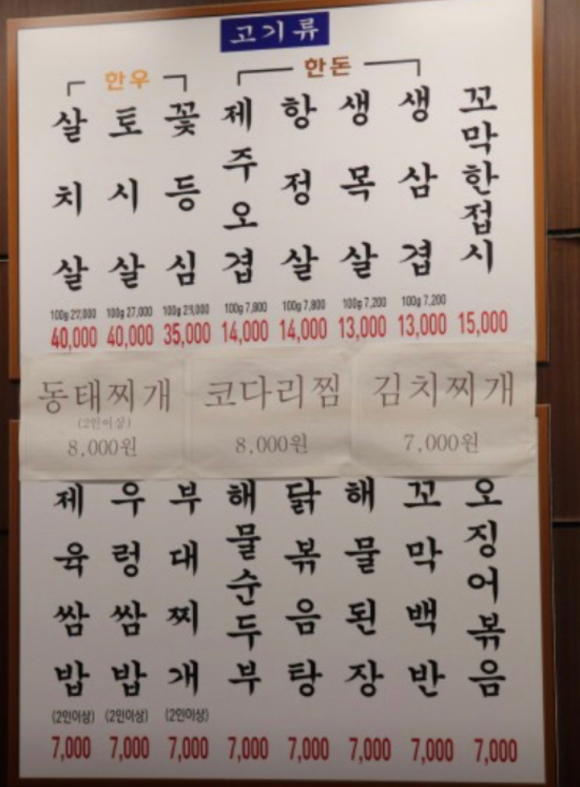 고기류
한우 한돈
살치살 토시살 꽃등심 제주오겹 항정살 생목살 생삼겹 꼬막한접시
100g 27,000 100g 27,000 100g 23,000 100g 7,800 100g 7,800 100g 7,200 100g 7,200
40,000 40,000 35,000 14,000 14,000 13,000 13,000 15,000
동태찌개 코다리찜 김치찌개
(2인이상)
8,000원 8,000원 7,000원
제육쌈밥 우렁쌈밥 부대찌개 해물순두부 닭볶음탕 해물된장 꼬막백반 오징어볶음
(2인이상) (2인이상) (2인이상)
7,000 7,000 7,000 7,000 7,000 7,000 7,000 7,000